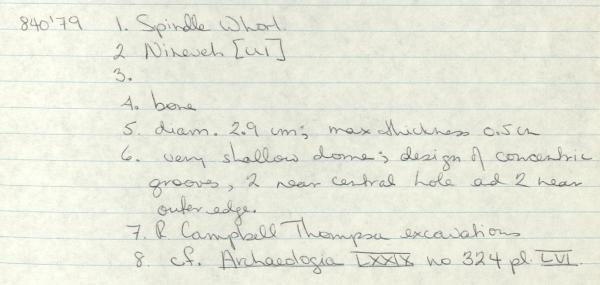 840'79 1. Spindle Whorl.
2 Nineveh [U1]
3.
4. bone
5. diam. 2.9 cm; max thickness 0.5cm
6. very shallow dome; design of concentric
grooves, 2 near central hole ad 2 near
outer edge.
7. R Campbell Thompson excavations
8. cf. Archaeologia LXXIX no 324 pl. LVI.